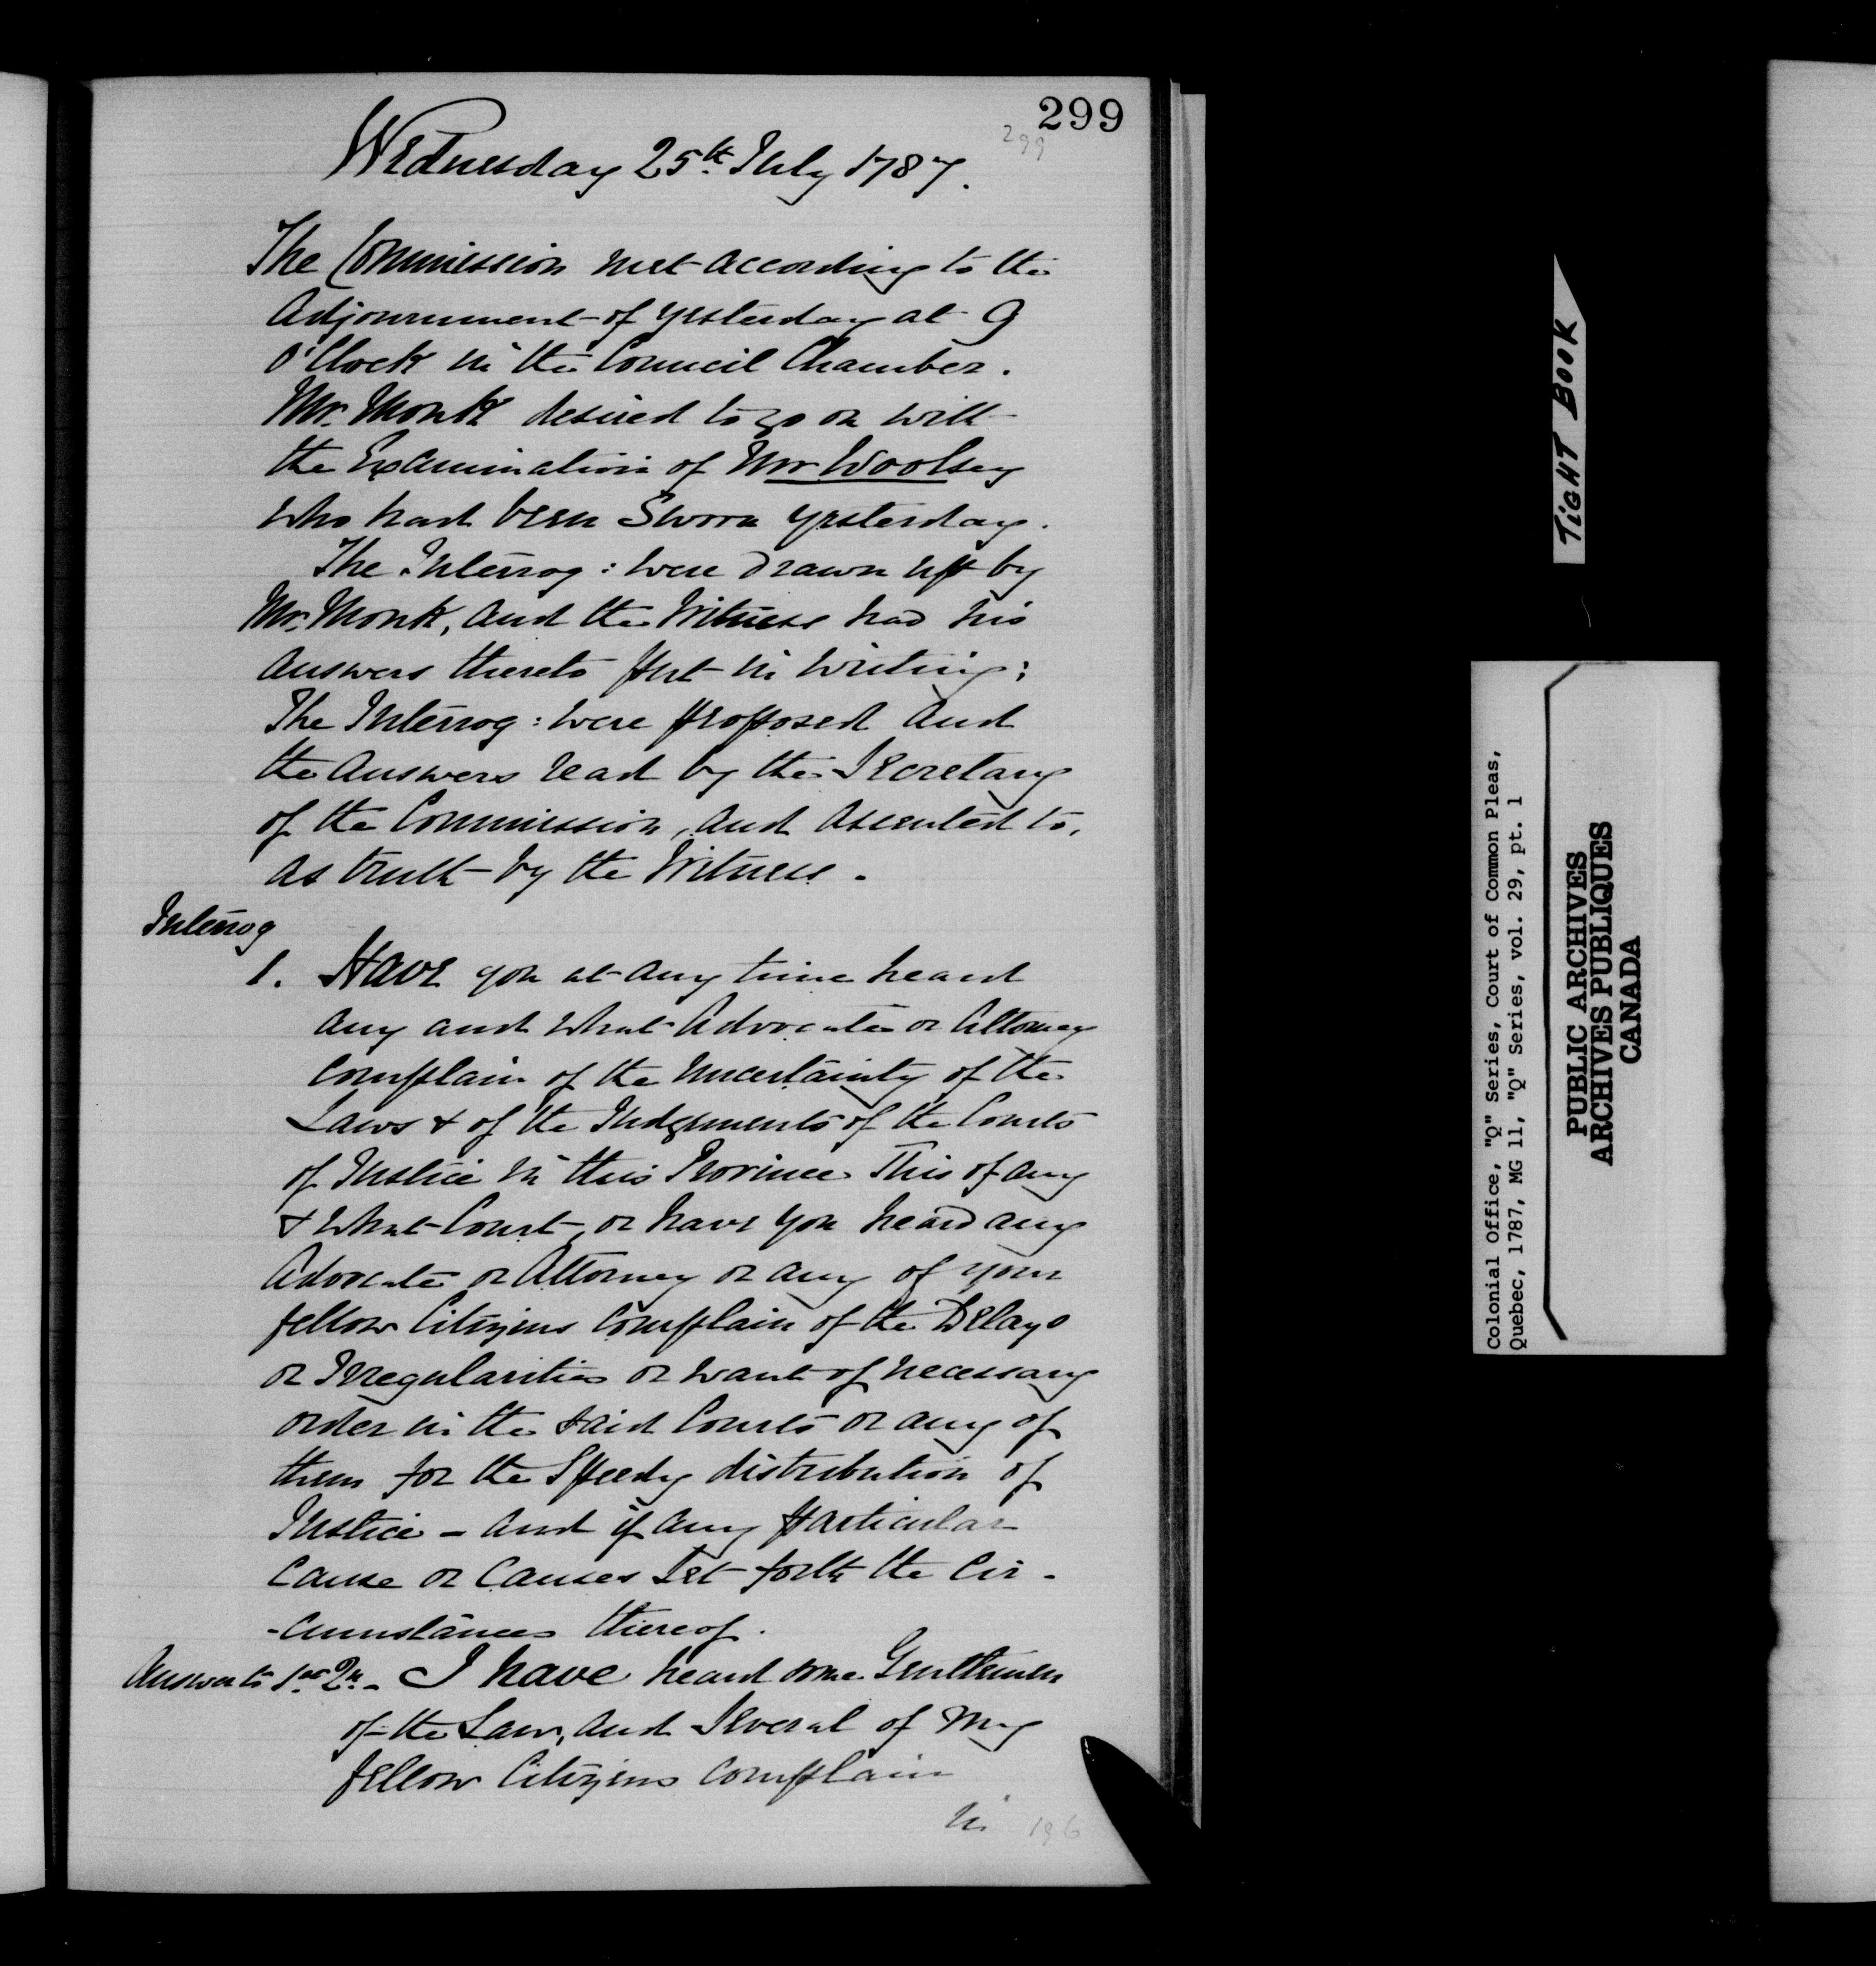 299
299
Wednesday 25th July 1787.
The Commission met according to the
Adjournment of yesterday at 9
O'Clock in the Council Chamber.
Mr. Monk desired to go on with
the Examination of Mr Woolsey
who had been Sworn yesterday.
The Interrog: were drawn up by
Mr. Monk, and the Witness had his
answers thereto put in writing;
The Interrog: were proposed and
the answers read by the Secretary
of the Commission, and assented to,
as truth by the Witness.
Interrog
1. Have you at any time heard
any and what Advocate or Attorney
complain of the uncertainty of the
Laws & of the Judgments of the Courts
of Justice in this Province This of any
& what Court, or have you heard any
Advocate or Attorney or any of your
fellow Citizens complain of the Delays
or Irregularities or want of necessary
order in the said Courts or any of
them for the Speedy distribution of
Justice - and if any particular
cause or causes Set forth the Cir-
-cumstances thereof.
Answer to 1st Qn. - I have heard some Gentlemen
of the Law, and Several of my
fellow Citizens complain
in
196
TIGHT BOOK
Colonial Office, "Q" Series, Court of Common Pleas,
Quebec, 1787, MG 11, "Q" Series, vol. 29, pt. 1
PUBLIC ARCHIVES
ARCHIVES PUBLIQUES
CANADA